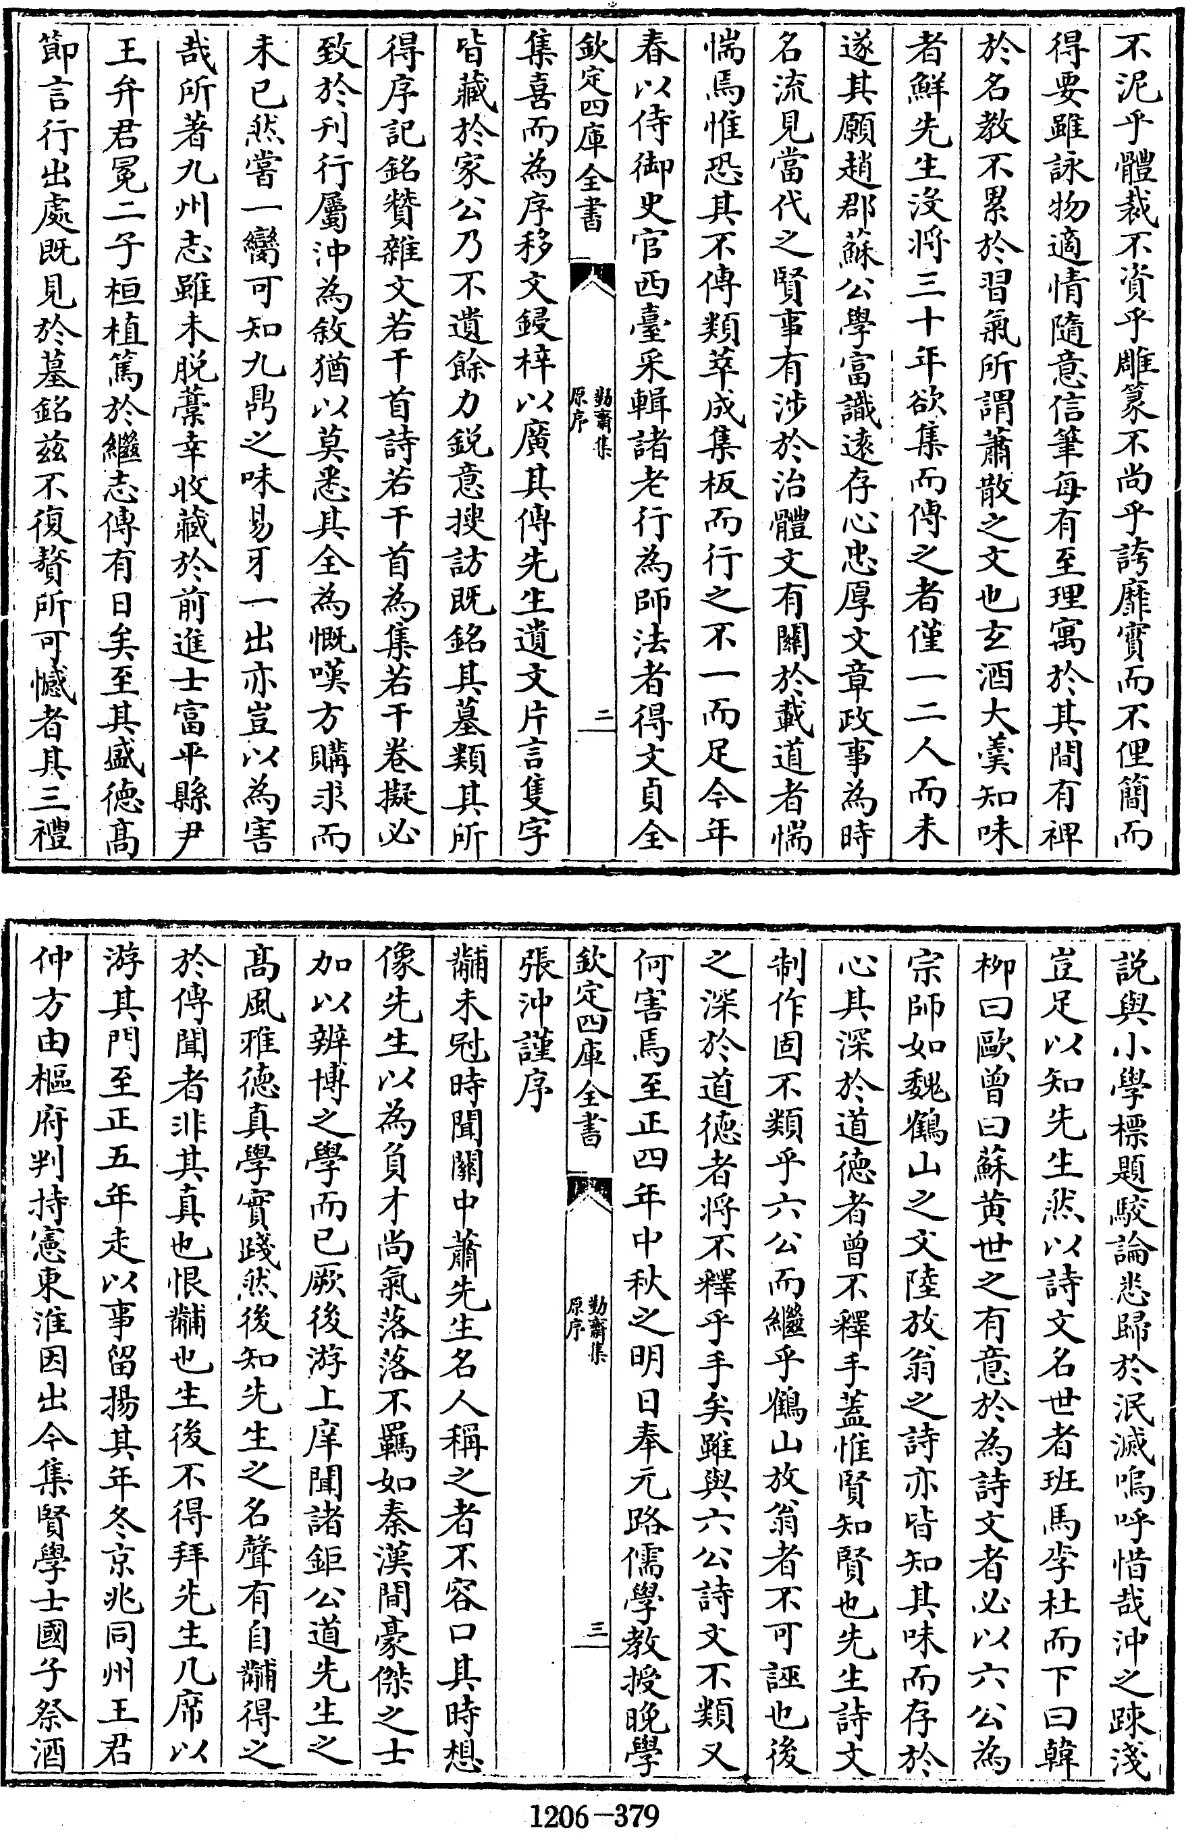 不泥乎體裁不資乎雕篆不尚乎誇靡實而不俚簡而
得要雖詠物適情隨意信筆每有至理寓於其間有裨
於名教不累於習氣所謂蕭散之文也玄酒大羹知味
者鮮先生沒將三十年欲集而傳之者僅一二人而未
遂其願趙郡蘇公學富識遠存心忠厚文章政事為時
名流見當代之賢事有涉於治體文有關於載道者惴
惴焉惟恐其不傳類萃成集板而行之不一而足今年
春以侍御史官西臺采輯諸老行為師法者得文貞全
欽定四庫全書
勤齋集
原序
二
集喜而為序移文鋟梓以廣其傳先生遺文片言隻字
皆藏於家公乃不遺餘力銳意搜訪既銘其墓類其所
得序記銘贊雜文若干首詩若干首為集若干卷擬必
致於刋行屬沖為敘猶以莫悉其全為慨嘆方購求而
未已然嘗一臠可知九鼎之味易牙一出亦豈以為害
哉所著九州志雖未脫藁幸收藏於前進士富平縣尹
王弁君冕二子桓植篤於繼志傳有日矣至其盛德高
節言行出處既見於墓銘茲不復贅所可憾者其三禮
說與小學標題駁論悉歸於泯滅嗚呼惜哉沖之踈淺
豈足以知先生然以詩文名世者班馬李杜而下曰韓
柳曰歐曾曰蘇黃世之有意於為詩文者必以六公為
宗師如魏鶴山之文陸放翁之詩亦皆知其味而存於
心其深於道德者曾不釋手蓋惟賢知賢也先生詩文
制作固不類乎六公而繼乎鶴山放翁者不可誣也後
之深於道德者將不釋乎手矣雖與六公詩文不類又
何害焉至正四年中秋之明日奉元路儒學教授晚學
欽定四庫全書
勤齋集
原序
三
張沖謹序
黼未冠時聞關中蕭先生名人稱之者不容口其時想
像先生以為負才尚氣落落不羈如秦漢間豪傑之士
加以辨博之學而已厥後游上庠聞諸鉅公道先生之
高風雅德真學實踐然後知先生之名聲有自黼得之
於傳聞者非其真也恨黼也生後不得拜先生几席以
游其門至正五年走以事留揚其年冬京兆同州王君
仲方由樞府判持憲東淮因出今集賢學士國子祭酒
1206-379